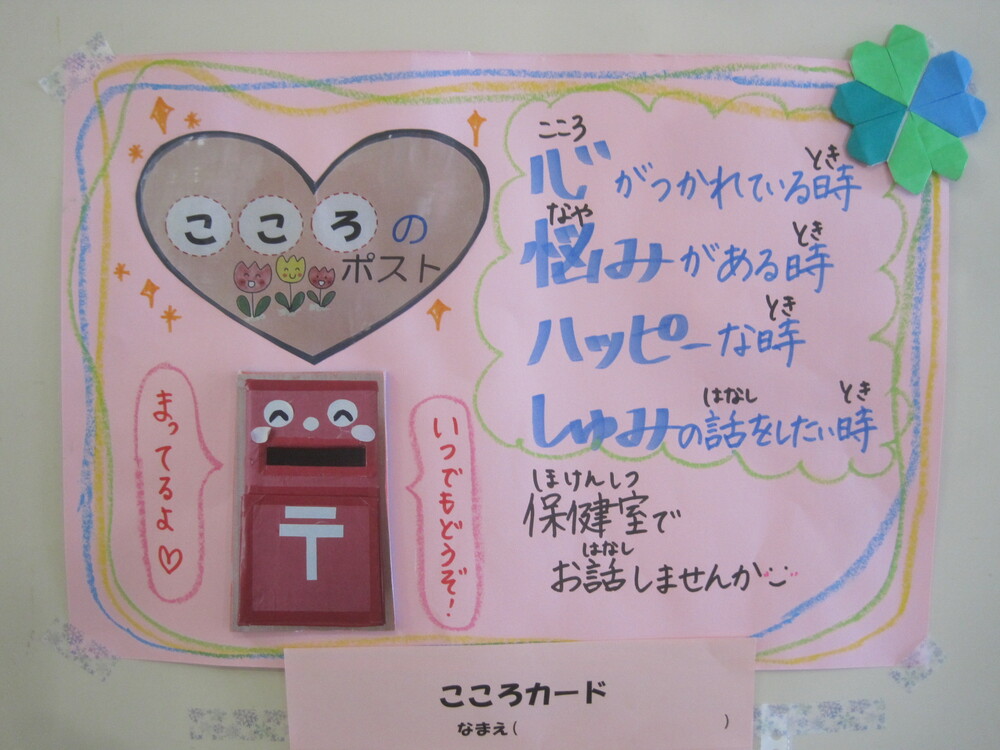 こころの
ポスト
まってるよ♡
〒
いつでもどうぞ!
心がつかれている時
こころ とき
悩みがある時
なや とき
ハッピーな時
とき
しゅみの話をしたい時
はなし とき
ほけんしつ
保健室で
はなし
お話しませんか
こころカード
なまえ( )